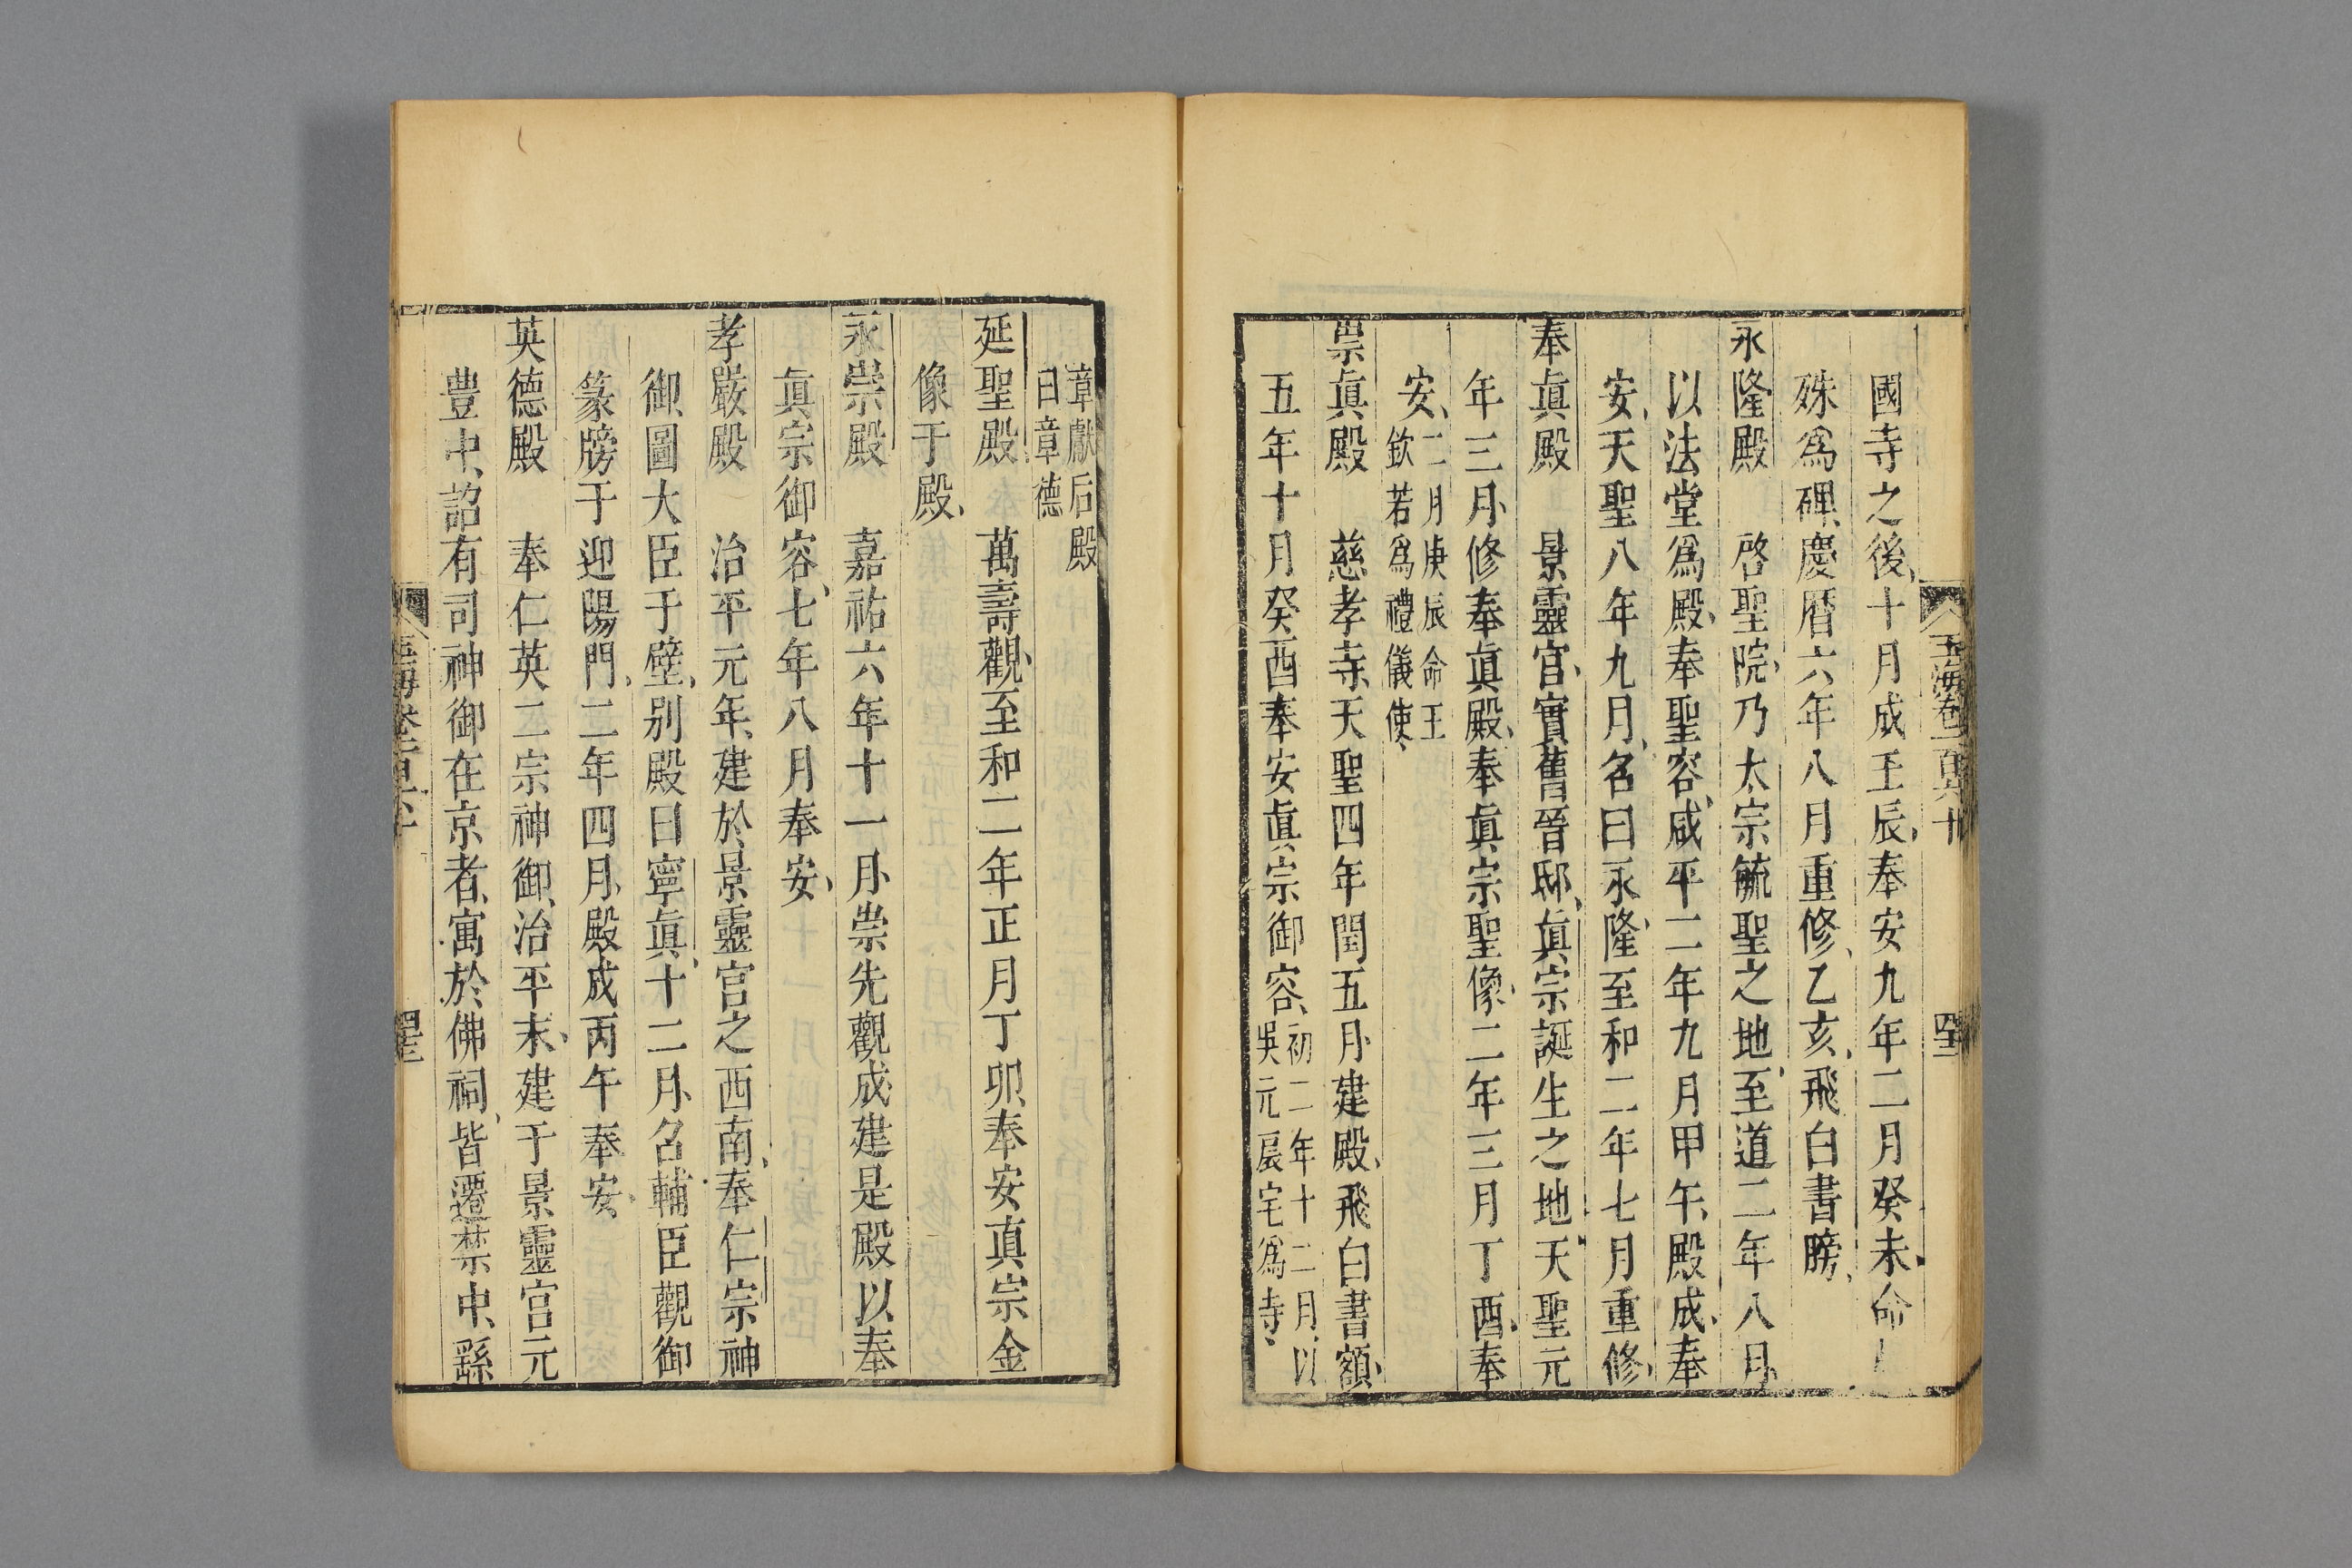 國寺之後十月成壬辰奉安九年二月癸未命
殊爲碑慶曆六年八月重修乙亥飛白書牓
永隆殿 啓聖院乃太宗毓聖之地至道二年八月
以法堂爲殿奉聖容咸平二年九月甲午殿成奉
安天聖八年九月名曰永隆至和二年七月重修
奉眞殿 景靈宮實舊晉邸眞宗誕生之地天聖元
年三月修奉眞殿奉眞宗聖像二年三月丁酉奉
安二月庚辰命王
欽若爲禮儀使
崇眞殿 慈孝寺天聖四年閏五月建殿飛白書額
五年十月癸酉奉安眞宗御容初二年十二月以
吳元扆宅爲寺
玉海卷一百六十
章獻后殿
曰章德
延聖殿 萬壽觀至和二年正月丁卯奉安眞宗金
像于殿
永崇殿 嘉祐六年十一月崇先觀成建是殿以奉
眞宗御容七年八月奉安
孝嚴殿 治平元年建於景靈宮之西南奉仁宗神
御圖大臣于壁別殿曰寧眞十二月名輔臣觀御
篆牓于迎陽門二年四月殿成丙午奉安
英德殿 奉仁英二宗神御治平末建于景靈宮元
豊中詔有司神御在京者寓於佛祠皆遷禁中繇